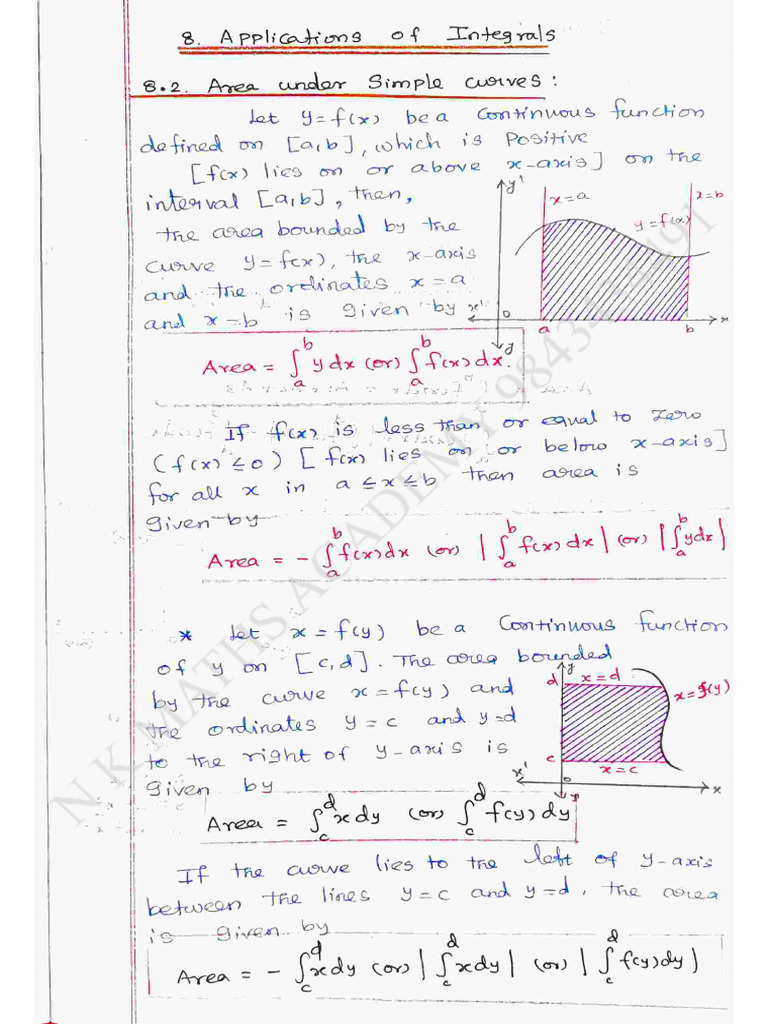 8. Applications of Integrals
8.2. Area under Simple curves:
Let y=f(x) be a continuous function
defined on [a,b], which is Positive
[f(x) lies on or above x-axis] on the
interval [a,b], then,
the area bounded by the
curve y=f(x), the x-axis
and the ordinates x=a
and x=b is given by
y'
x=a
x=b
y=f(x)
x'
0
x
a
b
y
Area = ∫ₐᵇ y dx (or) ∫ₐᵇ f(x) dx.
If f(x) is less than or equal to zero
(f(x) ≤ 0) [f(x) lies on or below x-axis]
for all x in a ≤ x ≤ b then area is
given by
Area = - ∫ₐᵇ f(x) dx (or) | ∫ₐᵇ f(x) dx | (or) | ∫ₐᵇ y dx |
* Let x = f(y) be a continuous function
of y on [c,d]. The area bounded
by the curve x = f(y) and
the ordinates y = c and y=d
to the right of y-axis is
given by
y
d
x=d
x=f(y)
c
x=c
x'
0
x
y
Area = ∫_c^d x dy (or) ∫_c^d f(y) dy
If the curve lies to the left of y-axis
between the lines y=c and y=d, the area
is given by
Area = - ∫_c^d x dy (or) | ∫_c^d x dy | (or) | ∫_c^d f(y) dy |
N K MATHS ACADEMY